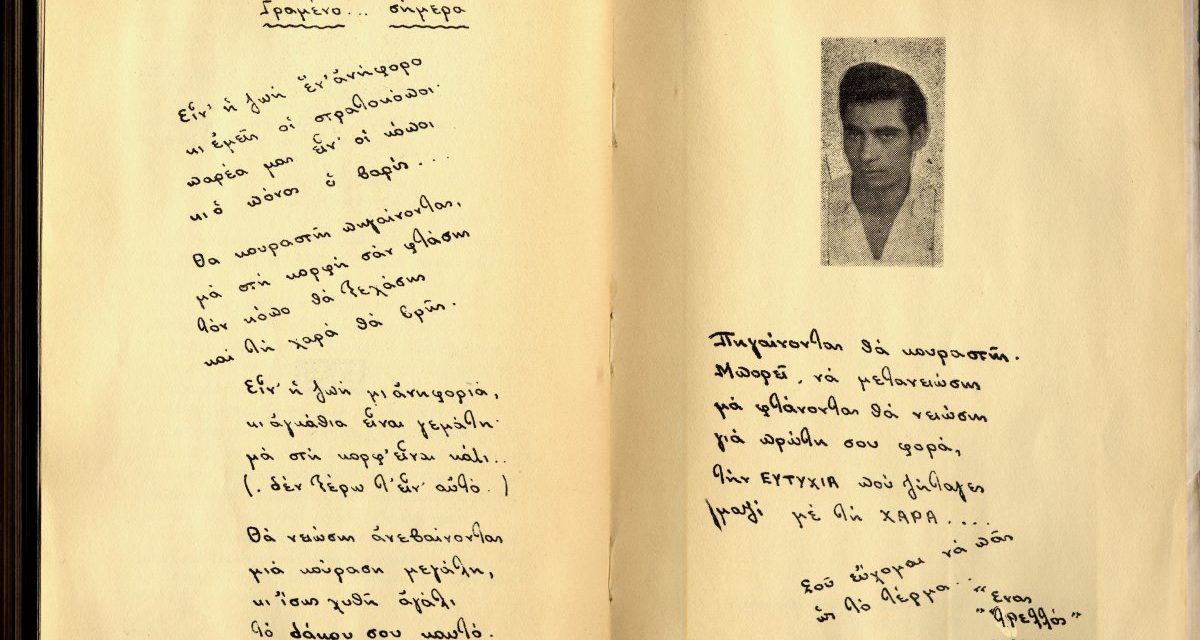 Γραμένο... σήμερα
Εἶν' ἡ ζωή ἕν' ἀνήφορο
κι ἐμεῖς οἱ στρατοκόποι·
παρέα μας εἶν' οἱ κόποι
κι ὁ πόνος ὁ βαρύς....
Θα κουραστῆς πηγαίνοντας,
μὰ στὴ κορφὴ σὰν φτάσης
τὸν κόπο θὰ ξεχάσης
καὶ τὴ χαρὰ θὰ βρῆς.
Εἶν' ἡ ζωὴ μι ἀνηφοριά,
κι ἀγκάθια εἶναι γεμάτη·
μὰ στὴ κορφ' εἶναι κάτι..
(. δὲν ξέρω τ' εἶν' αὐτό. )
Θὰ νειώσης ἀνεβαίνοντας
μιὰ κούραση μεγάλη,
κι ἴσως χυθῆ ἀγάλι
τὸ δάκρυ σου καυτό.
Πηγαίνοντας θὰ κουραστῆς.
Μπορεῖ, νὰ μετανειώσης
μὰ φτάνοντας θὰ νειώσης
γιὰ πρώτη σου φορά,
τὴν ΕΥΤΥΧΙΑ ποὺ ζήταγες
μαζὶ μὲ τὴ ΧΑΡΑ....
Σοῦ εὔχομαι νὰ πᾶς
ὥς τὸ τέρμα...
"Ένας
"τρελλός"